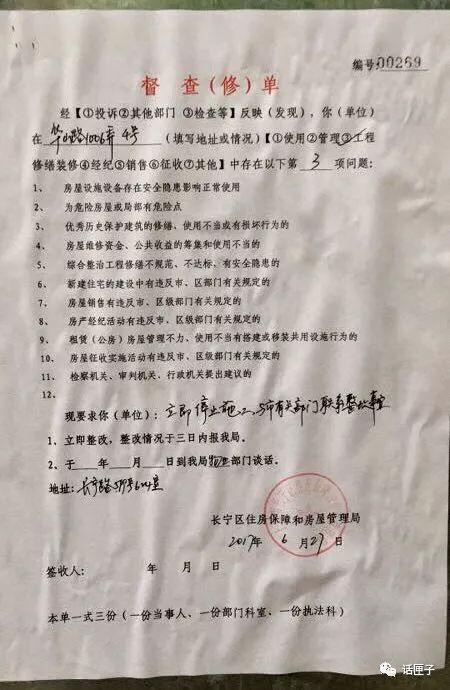 编号:00269
督 查（修）单
经【①投诉②其他部门 ③检查等】反映（发现），你（单位）
在 华山路1006弄4号（填写地址或情况）【①使用②管理③工程
修缮装修④经纪⑤销售⑥征收⑦其他】中存在以下第 3 项问题：
1、 房屋设施设备存在安全隐患影响正常使用
2、 为危险房屋或局部有危险点
3、 优秀历史保护建筑的修缮、使用不当或有损坏行为的
4、 房屋维修资金、公共收益的筹集和使用不当的
5、 综合整治工程修缮不规范、不达标、有安全隐患的
6、 新建住宅的建设中有违反市、区部门有关规定的
7、 房屋销售有违反市、区级部门有关规定的
8、 房产经纪活动有违反市、区级部门有关规定的
9、 租赁（公房）房屋管理不力、使用不当有搭建或移装共用设施行为的
10、 房屋征收实施活动有违反市、区级部门有关规定的
11、 检察机关、审判机关、行政机关提出建议的
12、
现要求你（单位）：立即停止施工，与市有关部门联系整改事宜
1、立即整改，整改情况于三日内报我局。
2、于 年 月 日到我局 部门谈话。
地址：长宁路599号 室
长宁区住房保障和房屋管理局
2017年 6 月 27 日
签收人： 年 月 日
本单一式三份（一份当事人、一份部门科室、一份执法科）
话匣子